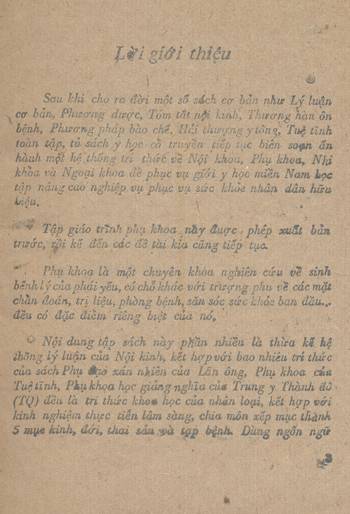 Lời giới thiệu
Sau khi cho ra đời một số sách cơ bản như Lý luận
cơ bản, Phương dược, Tóm tắt nội kinh, Thương hàn ôn
bệnh, Phương pháp bào chế, Hải thượng y tông, Tuệ tĩnh
toàn tập, tủ sách y học cổ truyền tiếp tục biên soạn ấn
hành một hệ thống tri thức về Nội khoa, Phụ khoa, Nhi
khoa và Ngoại khoa để phục vụ giới y học miền Nam học
tập nâng cao nghiệp vụ phục vụ sức khỏe nhân dân hữu
hiệu.
Tập giáo trình phụ khoa này được phép xuất bản
trước, rồi kế đến các đề tài kia cũng tiếp tục.
Phụ khoa là một chuyên khoa nghiên cứu về sinh
bệnh lý của phái yếu, có chỗ khác với trượng phu về các mặt
chẩn đoán, trị liệu, phòng bệnh, săn sóc sức khỏe ban đầu...
đều có đặc điểm riêng biệt của nó.
Nội dung tập sách này phần nhiều là thừa kế hệ
thống lý luận của Nội kinh, kết hợp với bao nhiêu tri thức
của sách Phụ đạo xán nhiên của Lãn ông, Phụ khoa của
Tuệ Tĩnh, Phụ khoa học giảng nghĩa của Trung y Thành đô
(TQ) đều là tri thức khoa học của nhân loại, kết hợp với
kinh nghiệm thực tiễn lâm sàng, chia môn xếp mục thành
5 mục kinh, đới, thai sản và tạp bệnh. Dùng ngôn ngữ
3